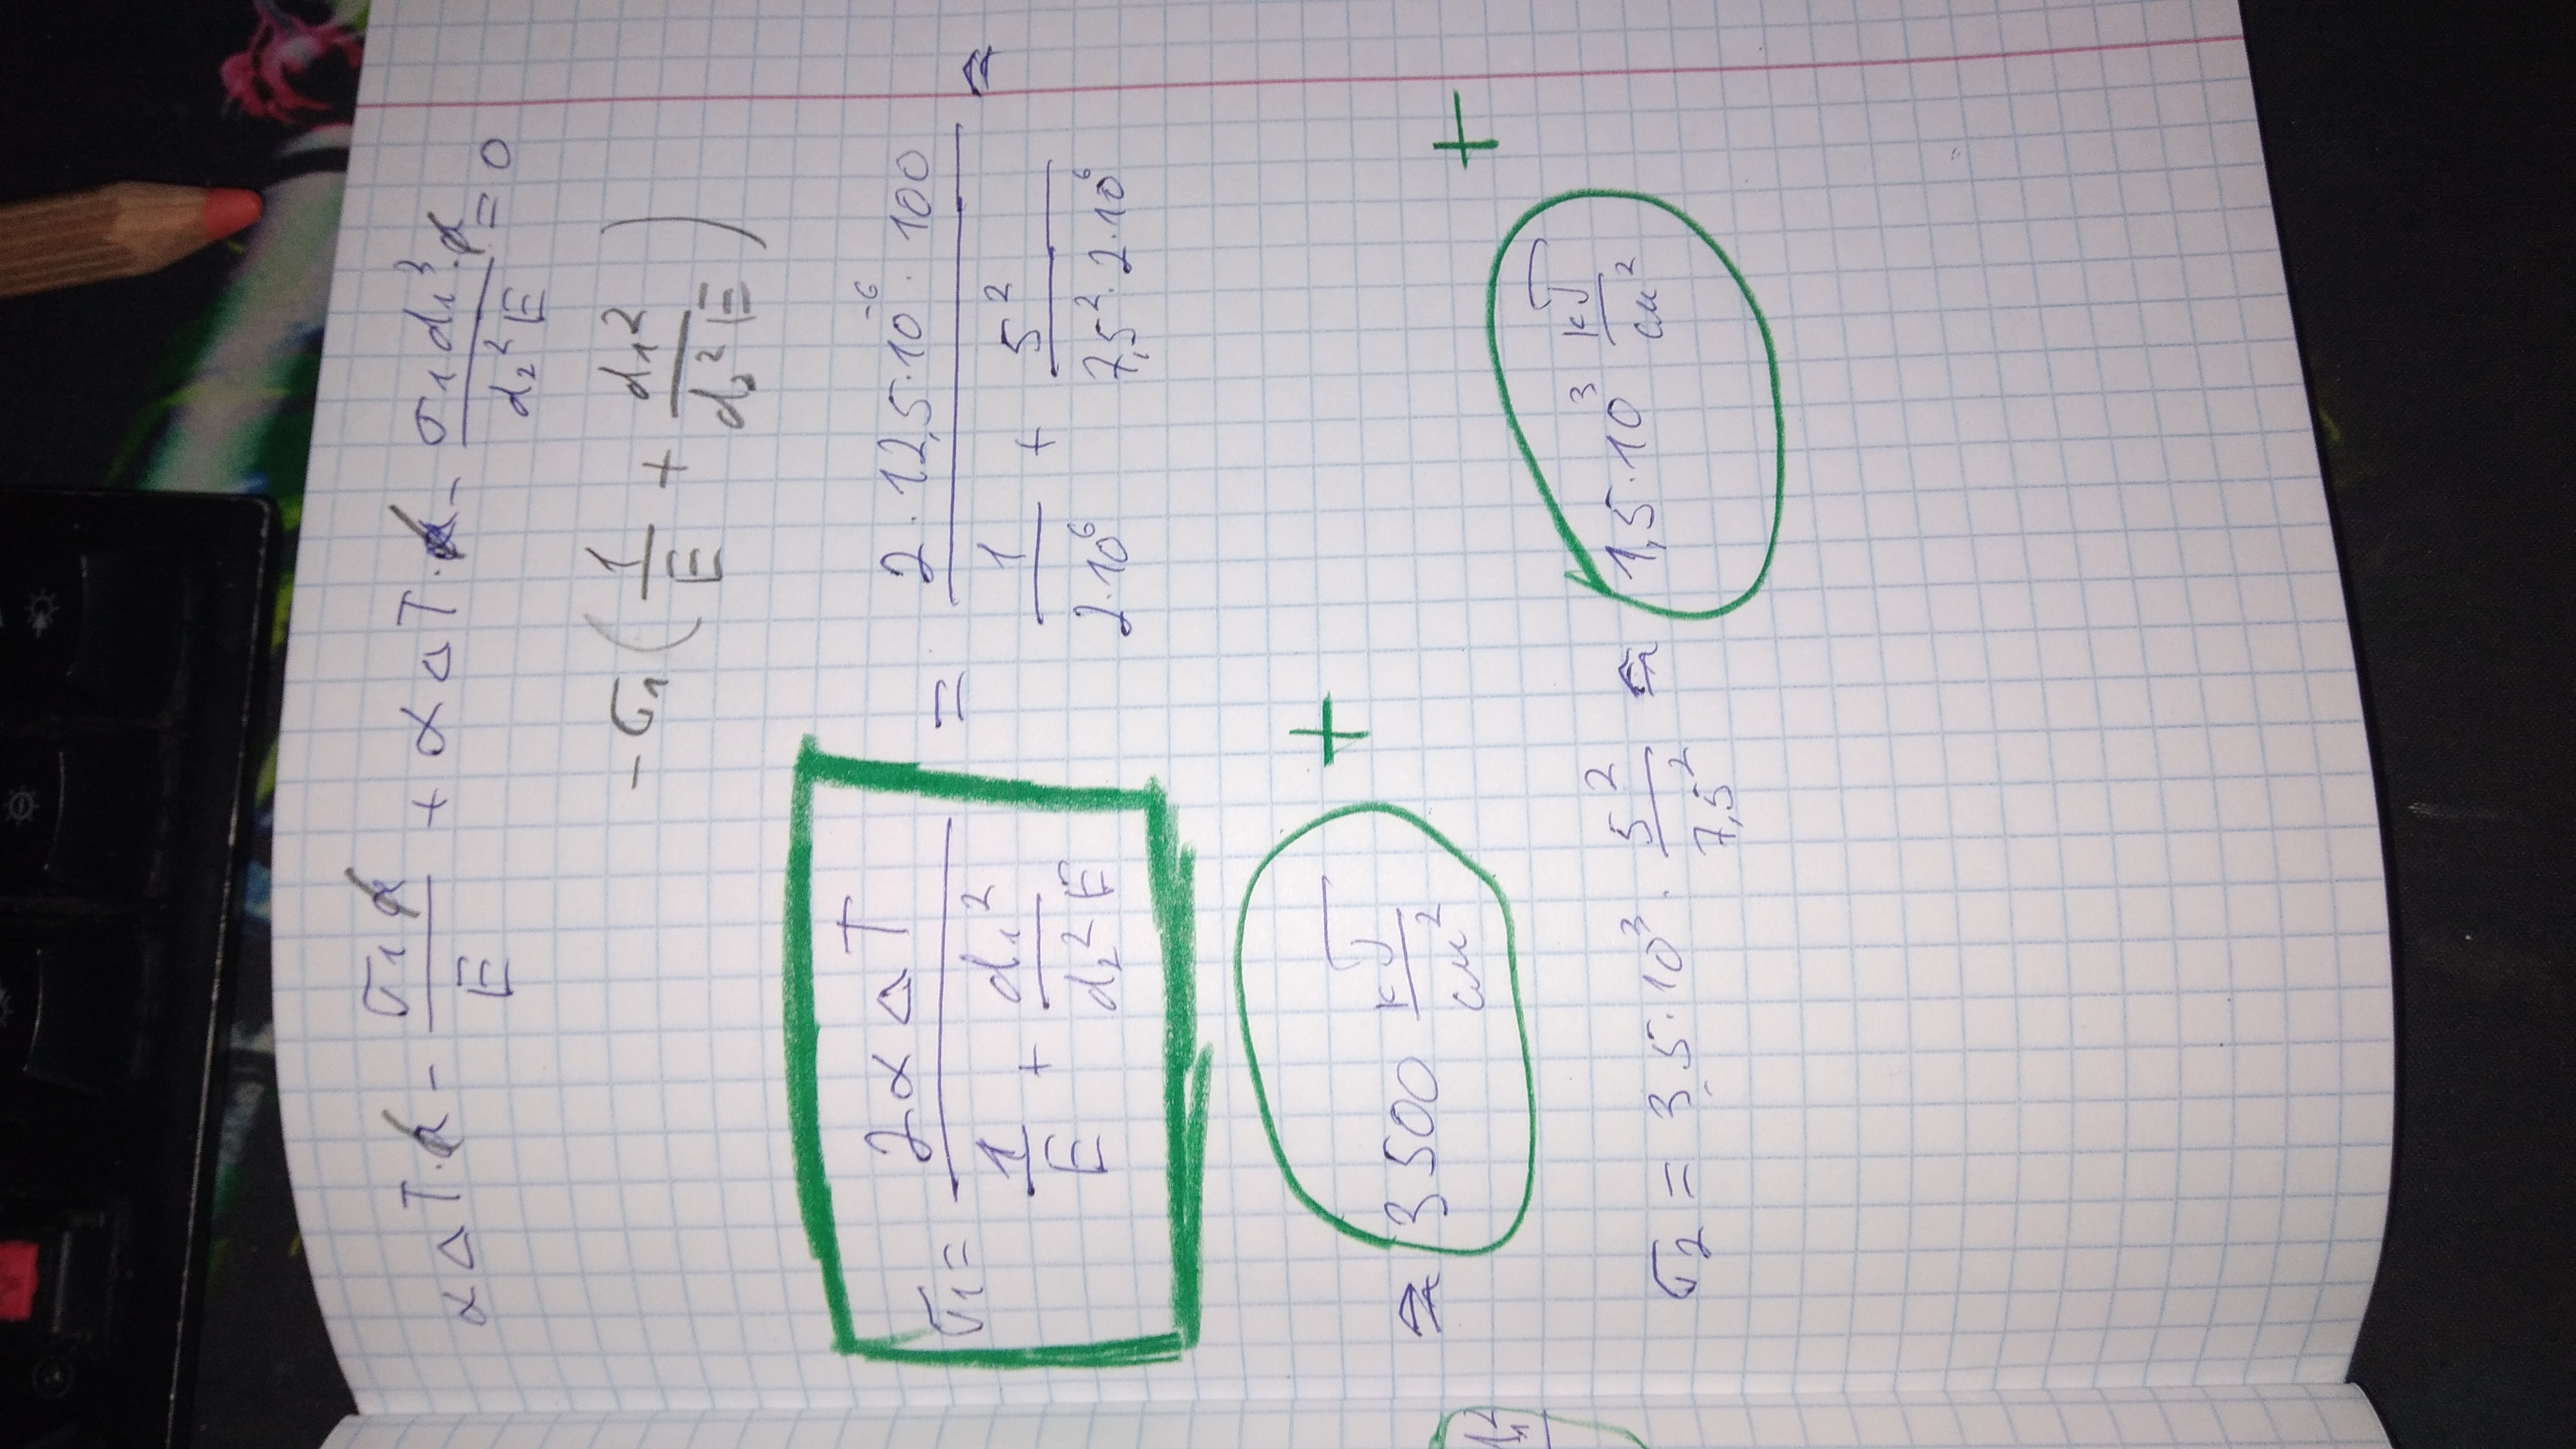 αΔT·a - σ₁a/E + αΔT·a - σ₁d₁³·a/d₂²E = 0
-σ₁(1/E + d₁²/d₂²E)
σ₁ = 2αΔT/(1/E + d₁²/d₂²E) = 2·12,5·10⁻⁶·100/(1/2·10⁶ + 5²/7,5²·2·10⁶) ≈
≈ 3500 кГ/см² +
σ₂ = 3,5·10³·5²/7,5² ≈ 1,5·10³ кГ/см² +